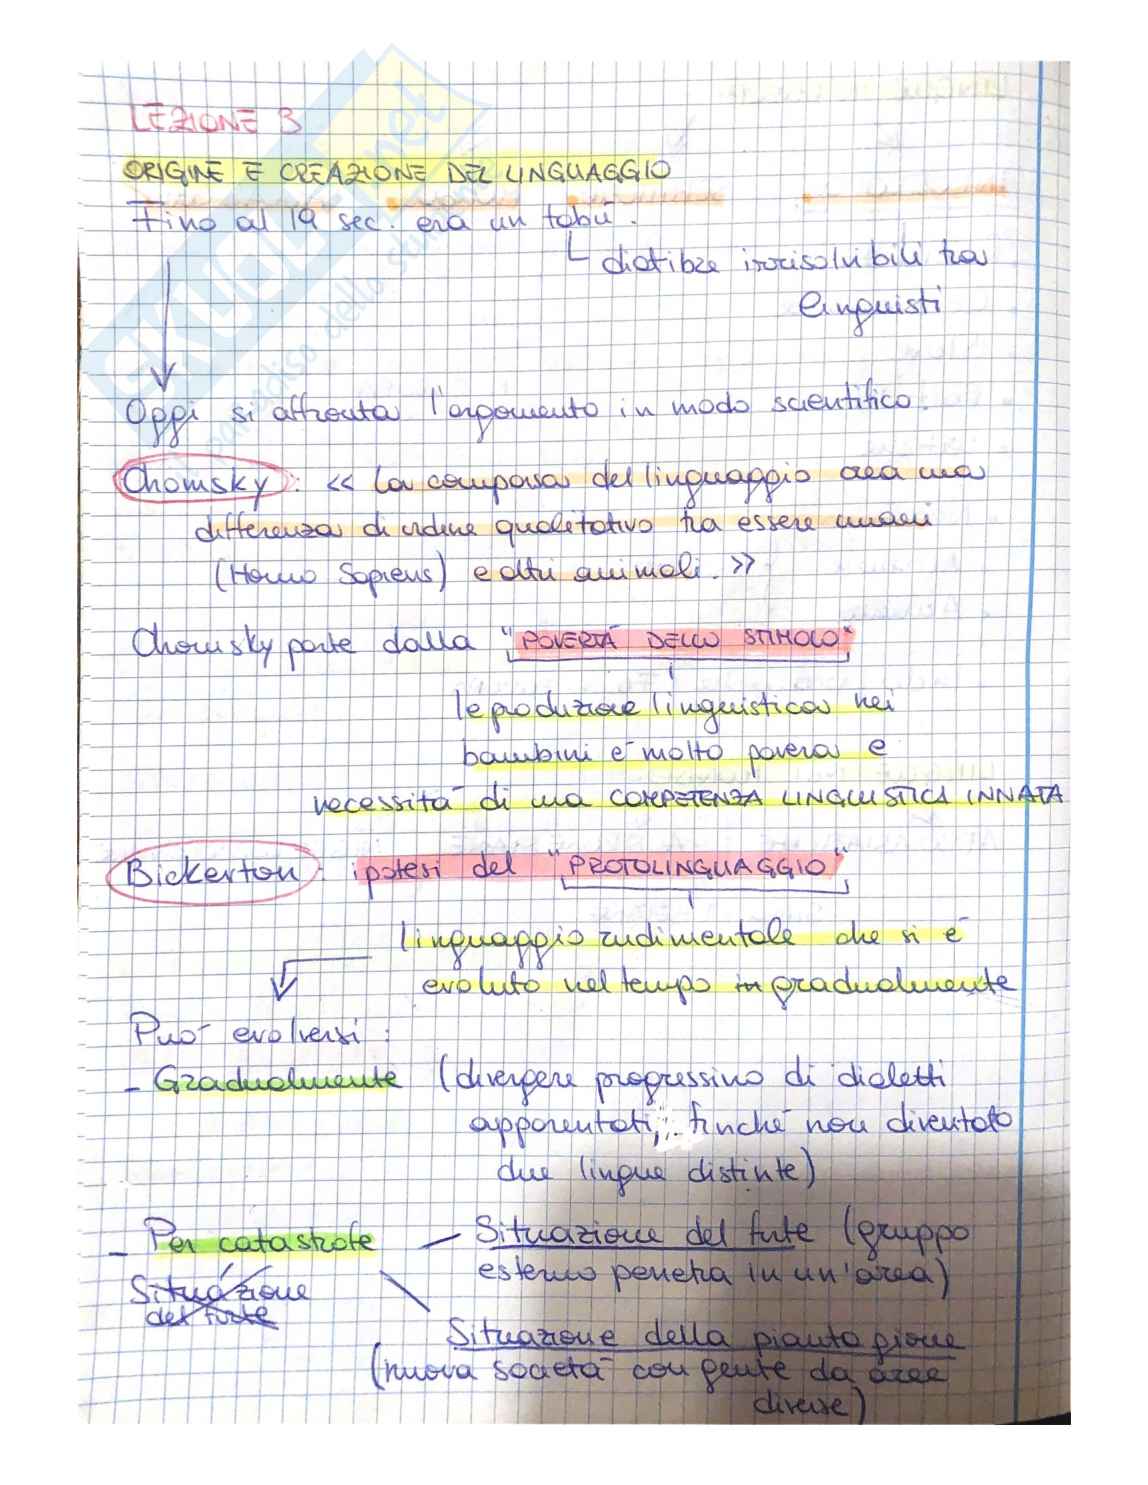 LEZIONE 3
ORIGINE E CREAZIONE DEL LINGUAGGIO
Fino al 19 sec. era un tabù.
diatibze irrisolvibili tra
linguisti
Oggi si affronta l'argomento in modo scientifico.
Chomsky: « La comparsa del linguaggio crea una
differenza di ordine qualitativo tra essere umani
(Homo Sapiens) e altri animali. »
Chomsky parte dalla "POVERTÀ DELLO STIMOLO"
le produzione linguistica nei
bambini è molto povera e
necessità di una COMPETENZA LINGUISTICA INNATA
Bickerton: ipotesi del "PROTOLINGUAGGIO"
linguaggio rudimentale che si è
evoluto nel tempo in gradualmente
Può evolversi:
- Gradualmente (divergere progressivo di dialetti
apparentati, finché non diventato
due lingue distinte)
- Per catastrofe - Situazione del forte (gruppo
esterno penetra in un'area)
Situazione
del forte
Situazione della piantagione
(nuova società con gente da aree
diverse)
SKUOLA.net
paradiso dello studente